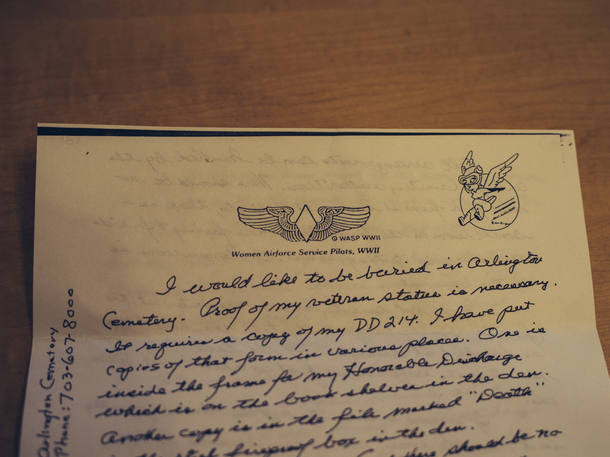 © WASP WWII
Women Airforce Service Pilots, WWII
I would like to be buried in Arlington
Cemetery. Proof of my veteran status is necessary.
It requires a copy of my DD 214. I have put
copies of that form in various places. One is
inside the frame for my Honorable Discharge
which is on the book shelves in the den.
Another copy is in the file marked "Death"
fireproof box in the den.
should be no
Arlington Cemetery
Phone: 703-607-8000